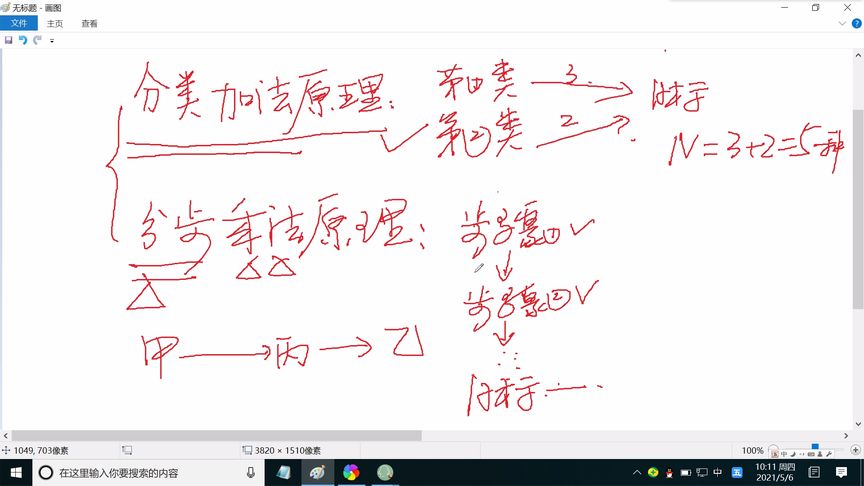 无标题 - 画图
文件 主页 查看
分类加法原理: 第①类 3 目标
第②类 2
N=3+2=5种
分步乘法原理: 步骤①
步骤②
甲 丙 乙
目标
1049, 703像素 3820 × 1510像素 100%
在这里输入你要搜索的内容
中 五 10:11 周四
2021/5/6